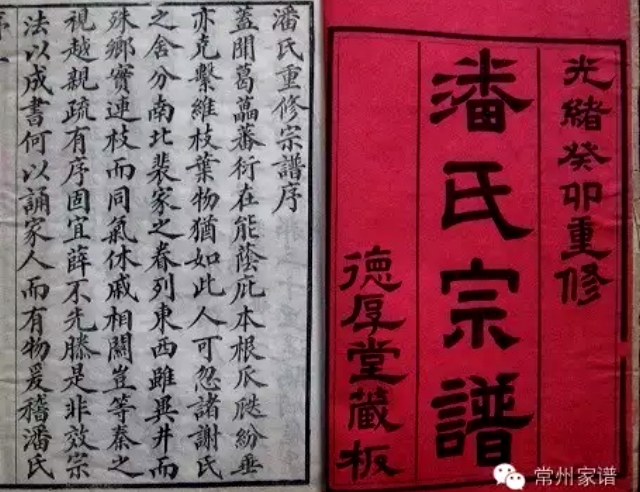 光緒癸卯重修
潘氏宗譜
德厚堂藏板
潘氏重修宗譜序
蓋聞葛藟蕃衍在能蔭庇本根瓜瓞紛垂
亦克繫維枝葉物猶如此人可忽諸謝氏
之舍分南北裴家之眷列東西雖異井而
殊鄉實連枝而同氣休戚相關豈等秦之
視越親疏有序固宜薛不先滕是非效宗
法以成書何以誦家人而有物爰稽潘氏
常州家谱